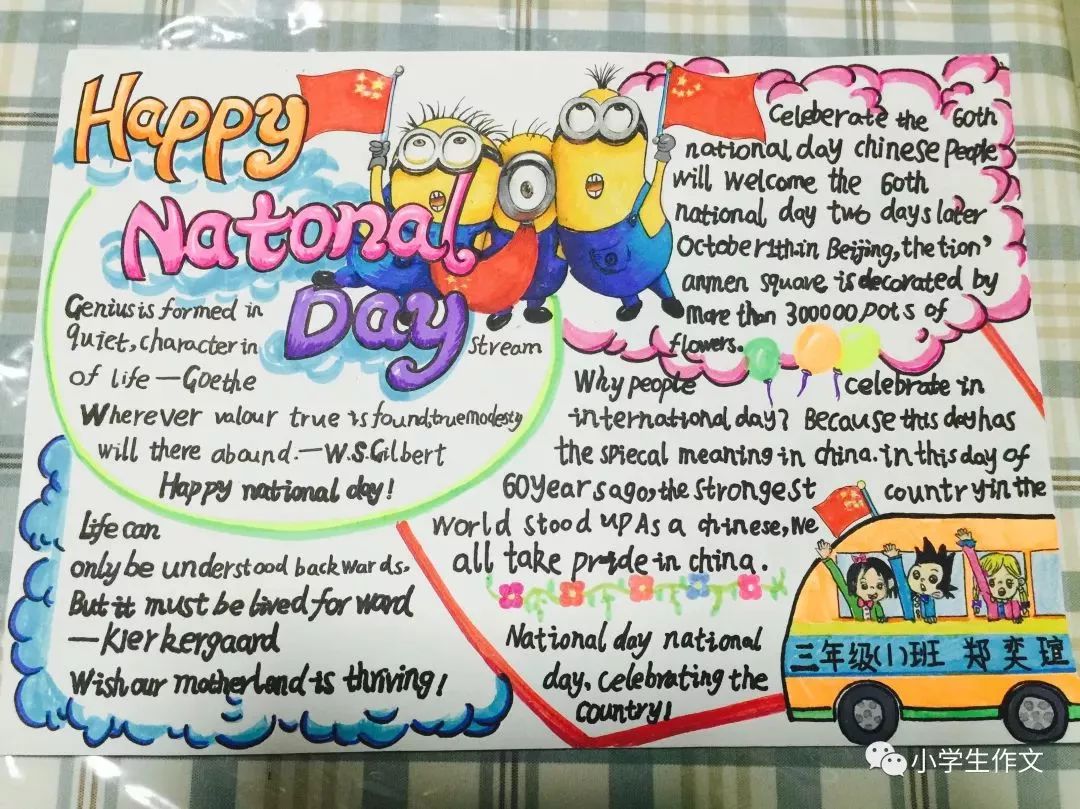 Happy
Natonal
Day
Genius is formed in
quiet, character in stream
of life —Goethe
Wherever valour true is found, true modesty
will there abound.—W.S.Gilbert
Happy national day!
Life can
only be understood backwards.
But it must be lived for ward
—Kierkergaard
Wish our motherland is thriving!
Celeberate the 60th
national day chinese People
will welcome the 60th
national day two days later
October 1th.in Beijing, the tion'
anmen square is decorated by
more than 300000 pots of
flowers.
Why people celebrate in
international day? Because this day has
the spiecal meaning in china. in this day of
60 years ago, the strongest country in the
world stood up As a chinese, we
all take pride in china.
National day national
day, celebrating the
country!
三年级(1)班 郑奕瑄
小学生作文